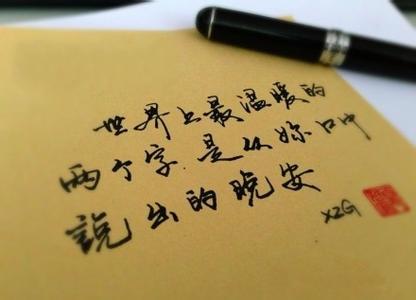 世界上最温暖的
两个字.是从妳口中
説出的晚安
XZG